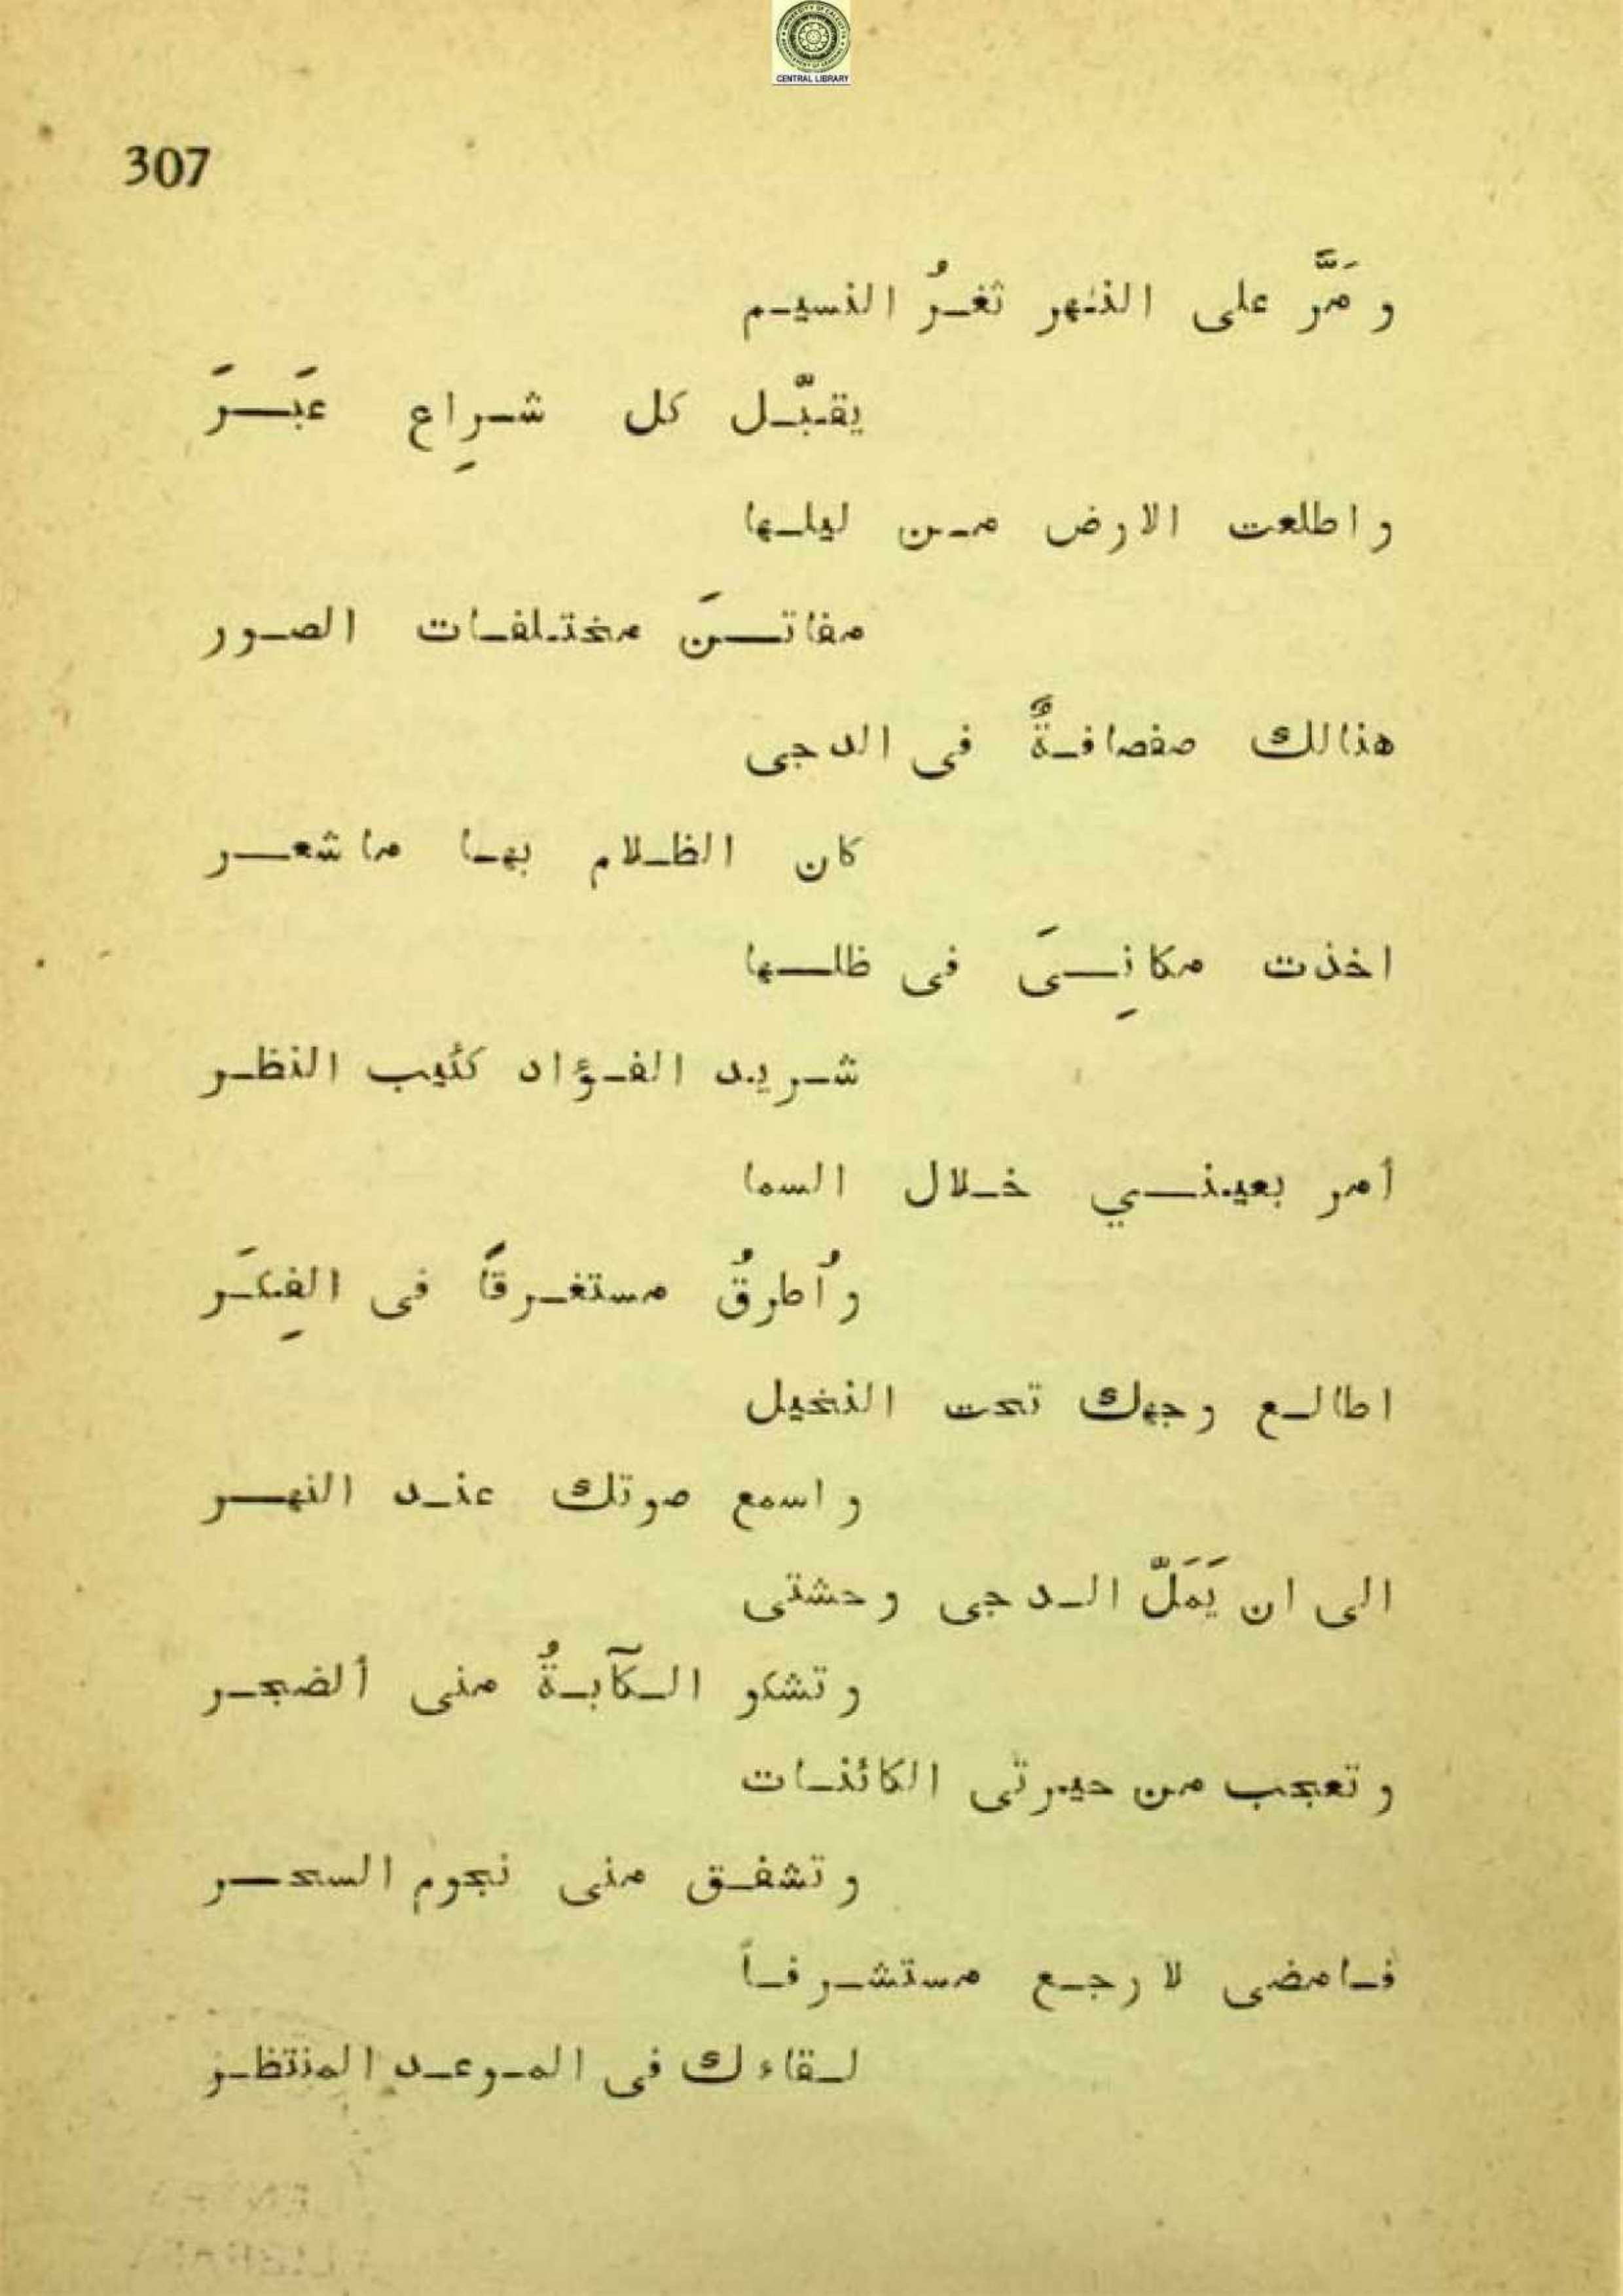 CENTRAL LIBRARY
307
و مَرَّ على النهر ثغرُ النسيم
يقبّل كل شراِع عَبَرَ
و اطلعت الارض من ليلها
مفاتنَ مختلفات الصور
هنالك صفصافةٌ فى الدجى
كان الظلام بها ما شعر
اخذت مكانِىَ فى ظلها
شريد الفؤاد كئيب النظر
أمر بعيني خلال السما
و اُطرقُ مستغرقاً فى الفِكَر
اطالع وجهك تحت النخيل
و اسمع صوتك عند النهر
الى ان يَمَلّ الدجى وحشتى
و تشكو الكآبةُ منى ألضجر
و تعجب من حيرتى الكائنات
و تشفق منى نجوم السحر
فامضى لارجع مستشرفاً
لقاءك فى الموعد المنتظر